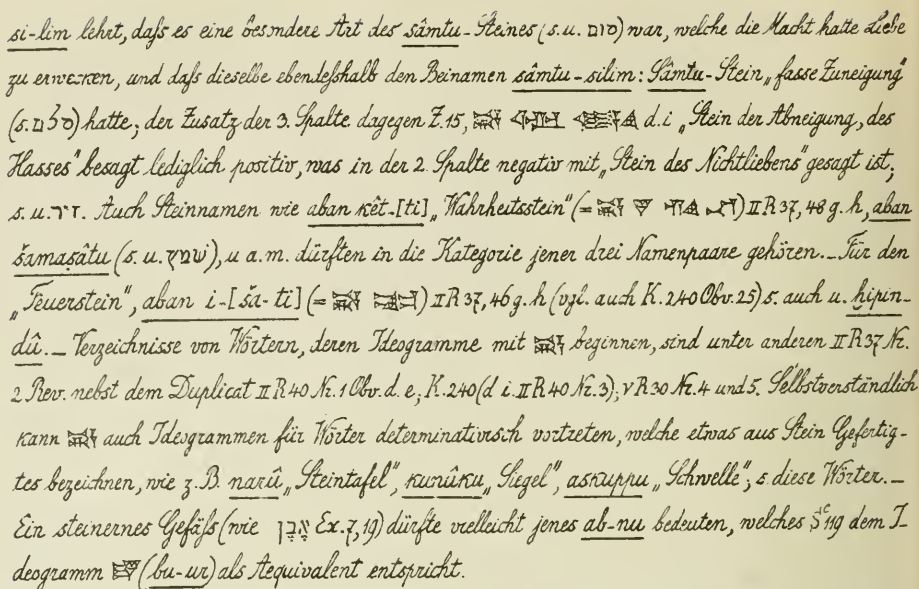 si-lim lehrt, daſs es eine besondere Art des sâmtu-Steines (s. u. סום) war, welche die Macht hatte Liebe
zu erwecken, und daſs dieselbe ebendeſshalb den Beinamen sâmtu-silim: Sâmtu-Stein „fasse Zuneigung“
(s. סלם) hatte; der Zusatz der 3. Spalte dagegen Z. 15, d. i. „Stein der Abneigung, des
Hasses“ besagt lediglich positiv, was in der 2. Spalte negativ mit „Stein des Nichtliebens“ gesagt ist,
s. u. זיר. Auch Steinnamen wie aban kêt-[ti] „Wahrheitsstein“ (= ) II R 37, 48 g. h, aban
šamaṣâtu (s. u. שמץ), u a. m. dürften in die Kategorie jener drei Namenpaare gehören. _ Für den
„Feuerstein“, aban i-[ša-ti] (= ) II R 37, 46 g. h (vgl. auch K. 240 Obv. 25) s. auch u. ḫipin-
dû. _ Verzeichnisse von Wörtern, deren Ideogramme mit beginnen, sind unter anderen II R 37 Nr.
2 Rev. nebst dem Duplicat II R 40 Nr. 1 Obv. d. e; K. 240 (d i. II R 40 Nr. 3); V R 30 Nr. 4 und 5. Selbstverständlich
kann auch Ideogrammen für Wörter determinativisch vortreten, welche etwas aus Stein Gefertig-
tes bezeichnen, wie z. B. narû „Steintafel“, kunûku „Siegel“, askuppu „Schwelle“; s. diese Wörter. _
Ein steinernes Gefäſs (wie אֶבֶן Ex. 7, 19) dürfte vielleicht jenes ab-nu bedeuten, welches Sᶜ 119 dem I-
deogramm (bu-ur) als Aequivalent entspricht.